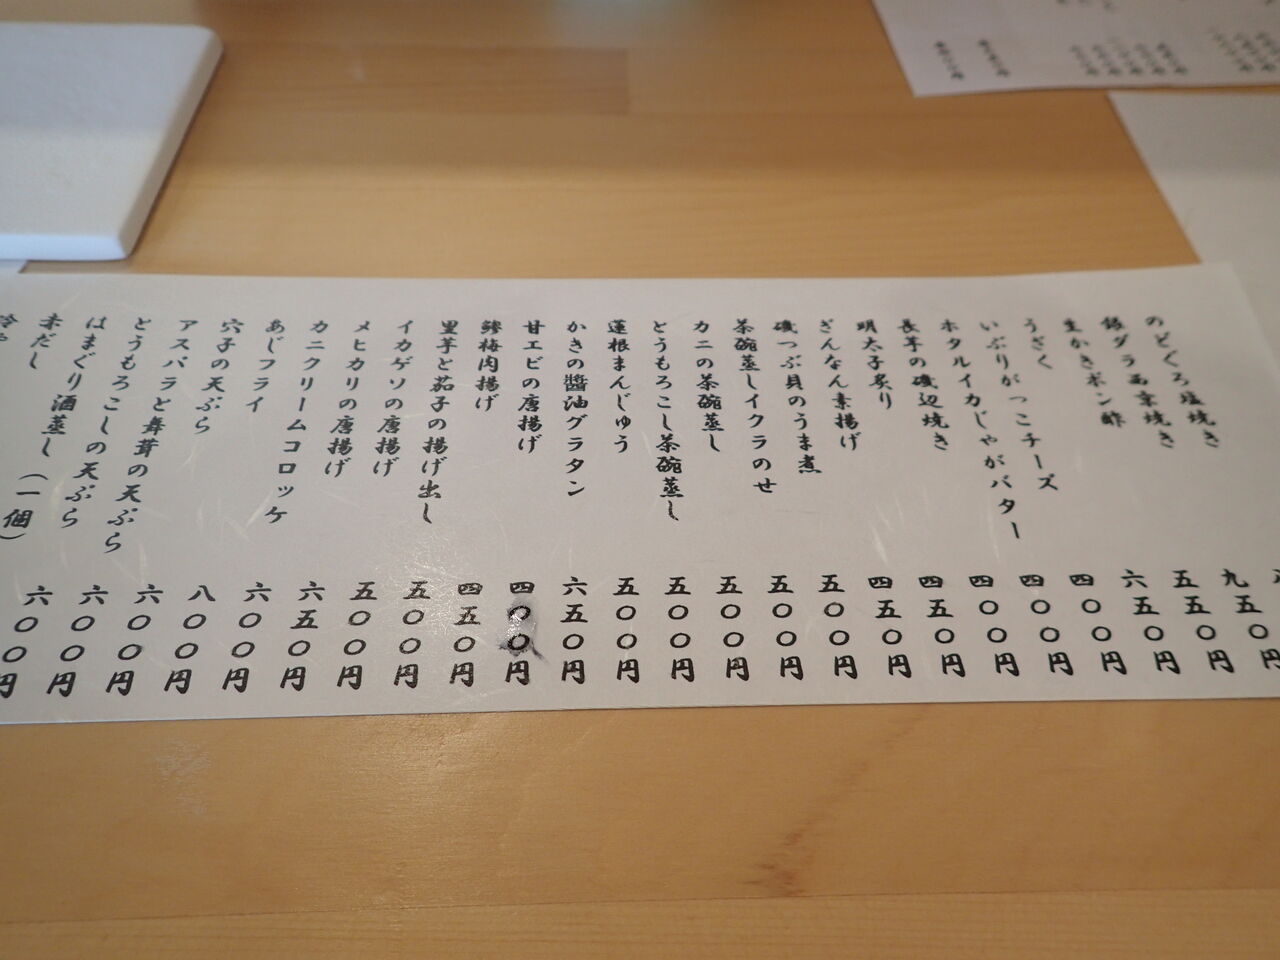 のどぐろ塩焼き
銀ダラ西京焼き 九五〇円
生かきポン酢 五五〇円
うざく 六五〇円
いぶりがっこチーズ 四〇〇円
ホタルイカじゃがバター 四〇〇円
長芋の磯辺焼き 四〇〇円
明太子炙り 四五〇円
ぎんなん素揚げ 四五〇円
磯つぶ貝のうま煮 五〇〇円
茶碗蒸しイクラのせ 五〇〇円
カニの茶碗蒸し 五〇〇円
とうもろこし茶碗蒸し 五〇〇円
蓮根まんじゅう 五〇〇円
かきの醬油グラタン 六五〇円
甘エビの唐揚げ 四〇〇円
鰺梅肉揚げ 四五〇円
里芋と茄子の揚げ出し 五〇〇円
イカゲソの唐揚げ 五〇〇円
メヒカリの唐揚げ 六五〇円
カニクリームコロッケ 六〇〇円
あじフライ 八〇〇円
穴子の天ぷら 六〇〇円
アスパラと舞茸の天ぷら 六〇〇円
とうもろこしの天ぷら 六〇〇円
はまぐり酒蒸し(一個)
赤だし